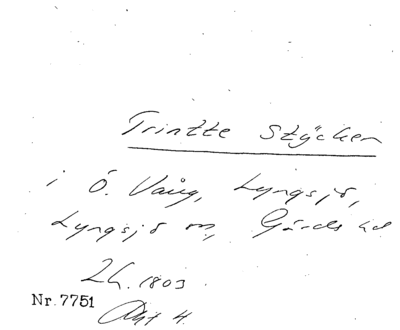 Trintte Stÿcken
i Ö. Vång, Lyngsjö,
Lyngsjö sn, Gärds hd
LL. 1803
Nr. 7751
Akt 4.